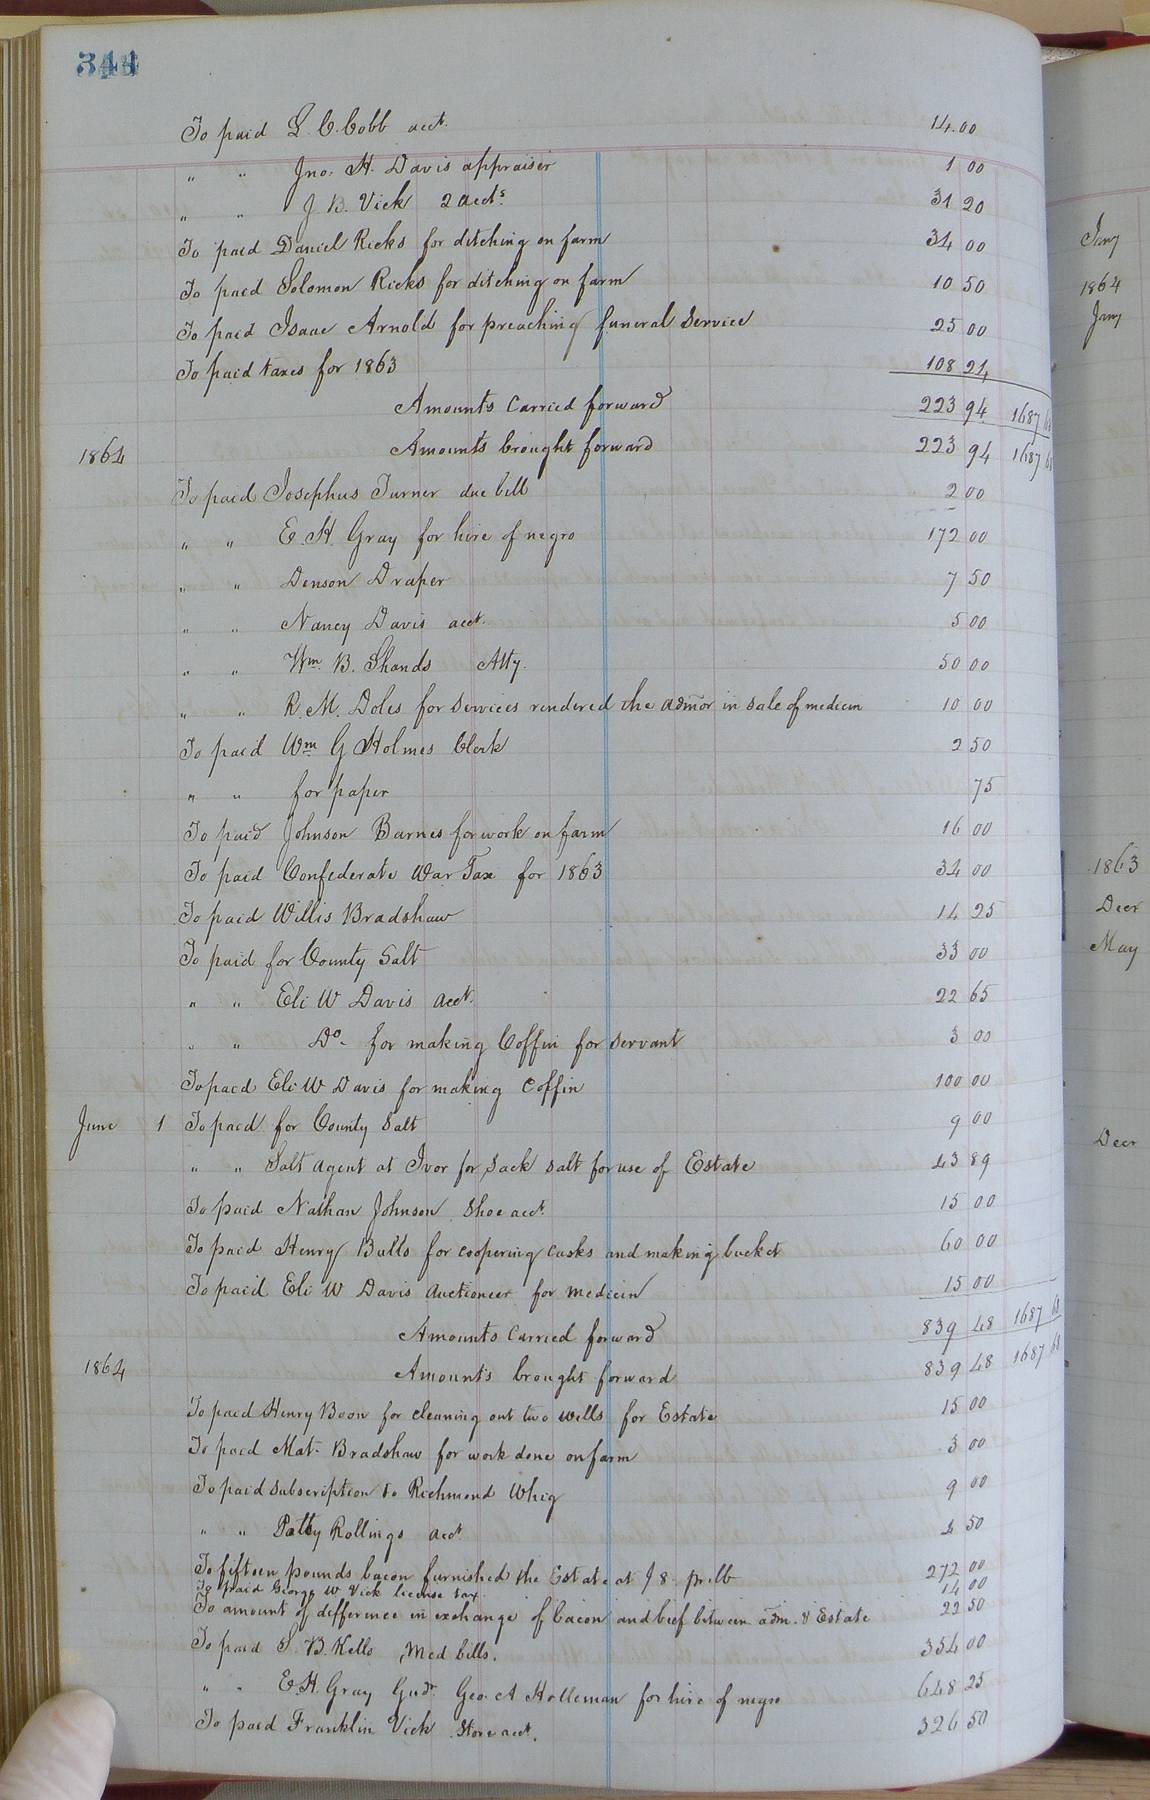 344
To paid L. C. Cobb acct. 14.00
" " Jno. H. Davis appraiser 1 00
" " J. B. Vick 2 accts 31 20
To paid Daniel Ricks for ditching on farm 34 00
To paid Solomon Ricks for ditching on farm 10 50
To paid Isaac Arnold for preaching funeral service 25 00
To paid taxes for 1863 108 24
Amounts carried forward 223 94 1687 68
1864 Amounts brought forward 223 94 1687 68
To paid Josephus Turner due bill 2 00
" " E. H. Gray for hire of negro 172 00
" " Denson Draper 7 50
" " Nancy Davis acct. 5 00
" " Wm. B. Shands Atty. 50 00
" " R. M. Doles for services rendered the admor in sale of medicin 10 00
To paid Wm G Holmes Clerk 2 50
" " for paper 75
To paid Johnson Barnes for work on farm 16 00
To paid Confederate War Tax for 1863 34 00
To paid Willis Bradshaw 14 25
To paid for County Salt 33 00
" " Eli W Davis acct. 22 65
" " Do. for making Coffin for servant 3 00
To paid Eli W Davis for making Coffin 100 00
June 1 To paid for County Salt 9 00
" " Salt agent at Ivor for sack salt for use of Estate 43 89
To paid Nathan Johnson Shoe acct. 15 00
To paid Henry Butts for coopering casks and making bucket 60 00
To paid Eli W Davis auctioneer for medicin 15 00
Amounts carried forward 839 48 1687 68
1864 Amounts brought forward 839 48 1687 68
To paid Henry Boon for cleaning out two wells for Estate 15 00
To paid Mat. Bradshaw for work done on farm 3 00
To paid subscription to Richmond Whig 9 00
" " Patsy Rollings acct 4 50
To fifteen pounds bacon furnished the Estate at $8. pr. lb 272 00
To paid George W Vick license tax 14 00
To amount of difference in exchange of bacon and beef between adm. & Estate 22 50
To paid S. B. Kello Med bills. 354 00
" " E. H. Gray Gudr. Geo. A Holleman for hire of negro 648 25
To paid Franklin Vick Store acct. 326 50
Jany
1864
Jany
1863
Decr
May
Decr